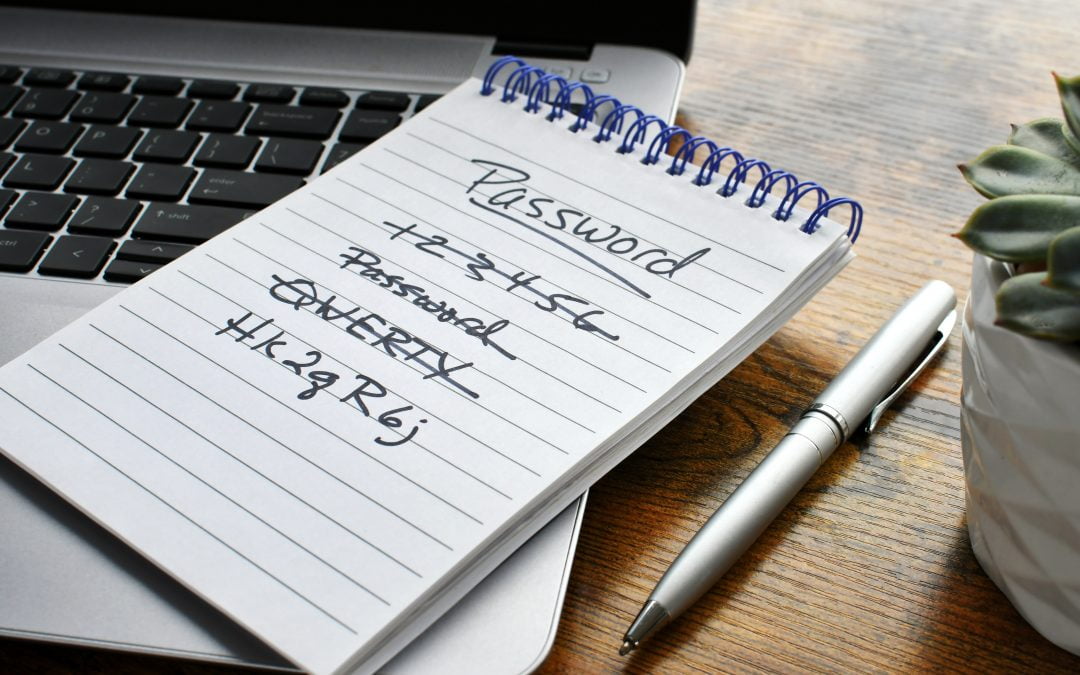 Password
123456
Password
QWERTY
Hk2gR6j
backspace
enter
shift
ctrl